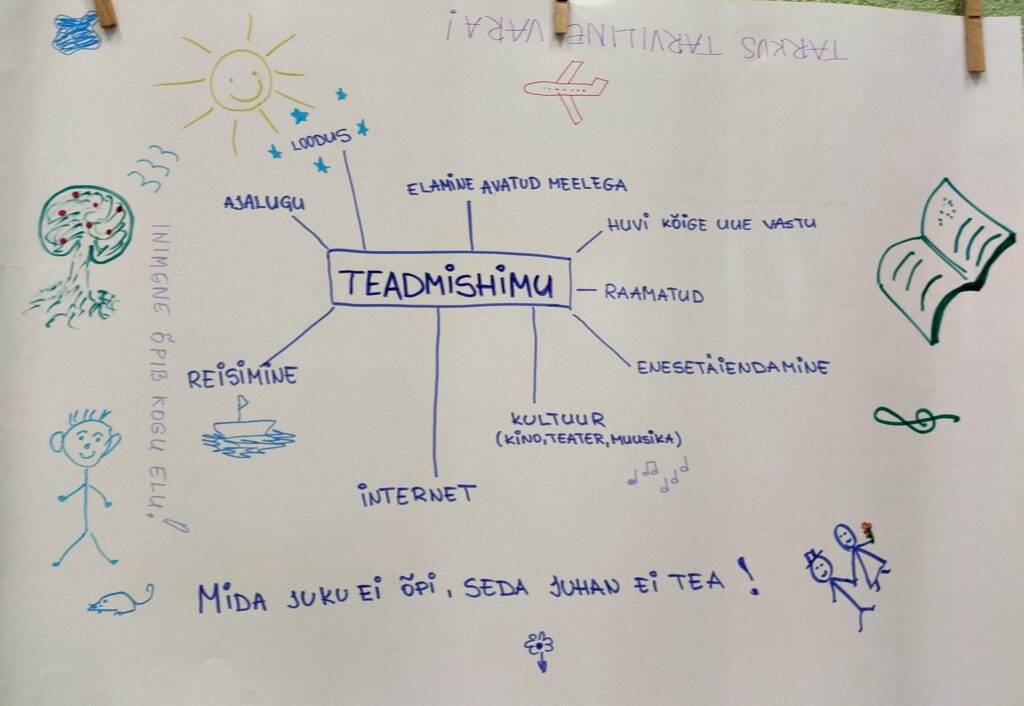 TARKUS TARVILINE VARA!
LOODUS
AJALUGU
ELAMINE AVATUD MEELEGA
HUVI KÕIGE UUE VASTU
TEADMISHIMU
RAAMATUD
INIMENE ÕPIB KOGU ELU!
REISIMINE
ENESETÄIENDAMINE
KULTUUR
(KINO, TEATER, MUUSIKA)
INTERNET
MIDA JUKU EI ÕPI, SEDA JUHAN EI TEA!